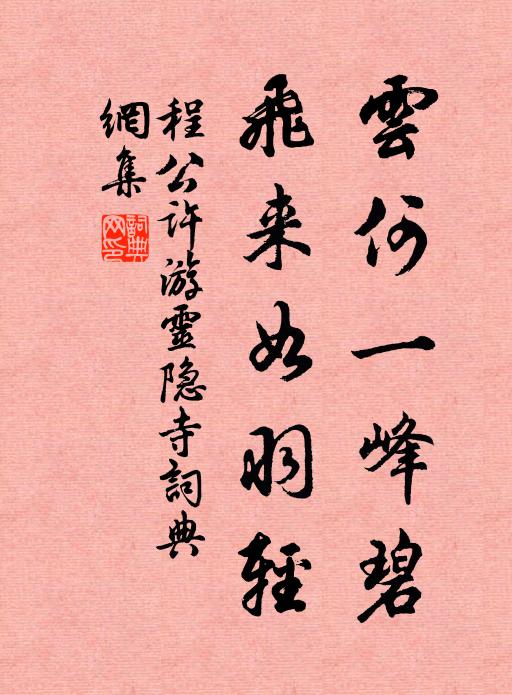 雲何一峰碧
飛来如羽輕
程公許游靈隐寺詞典
網集
詞典网印